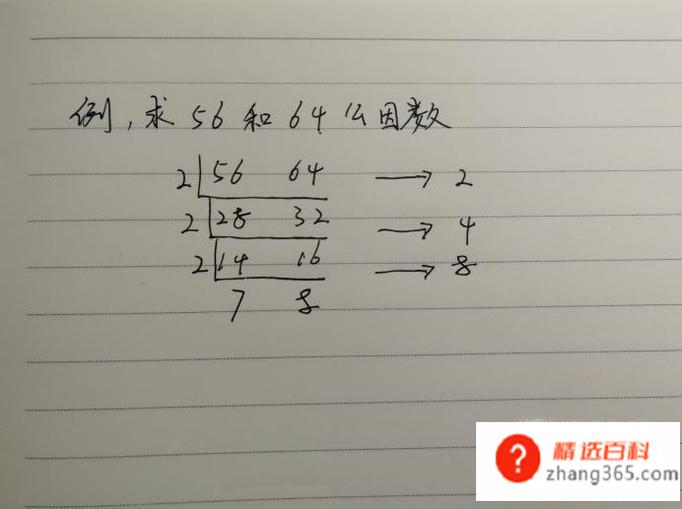 例，求56和64公因数
2 56 64 → 2
2 28 32 → 4
2 14 16 → 8
7 8
?
精选百科
zhang365.com